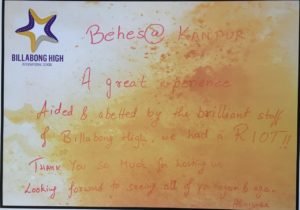 BILLABONG HIGH
INTERNATIONAL SCHOOL
Behes@ KANPUR
A great experience
Aided & abetted by the brilliant staff
of Billabong High, we had a RIOT!!
THANK YOU so much for hosting us
Looking forward to seeing all of you again & again.